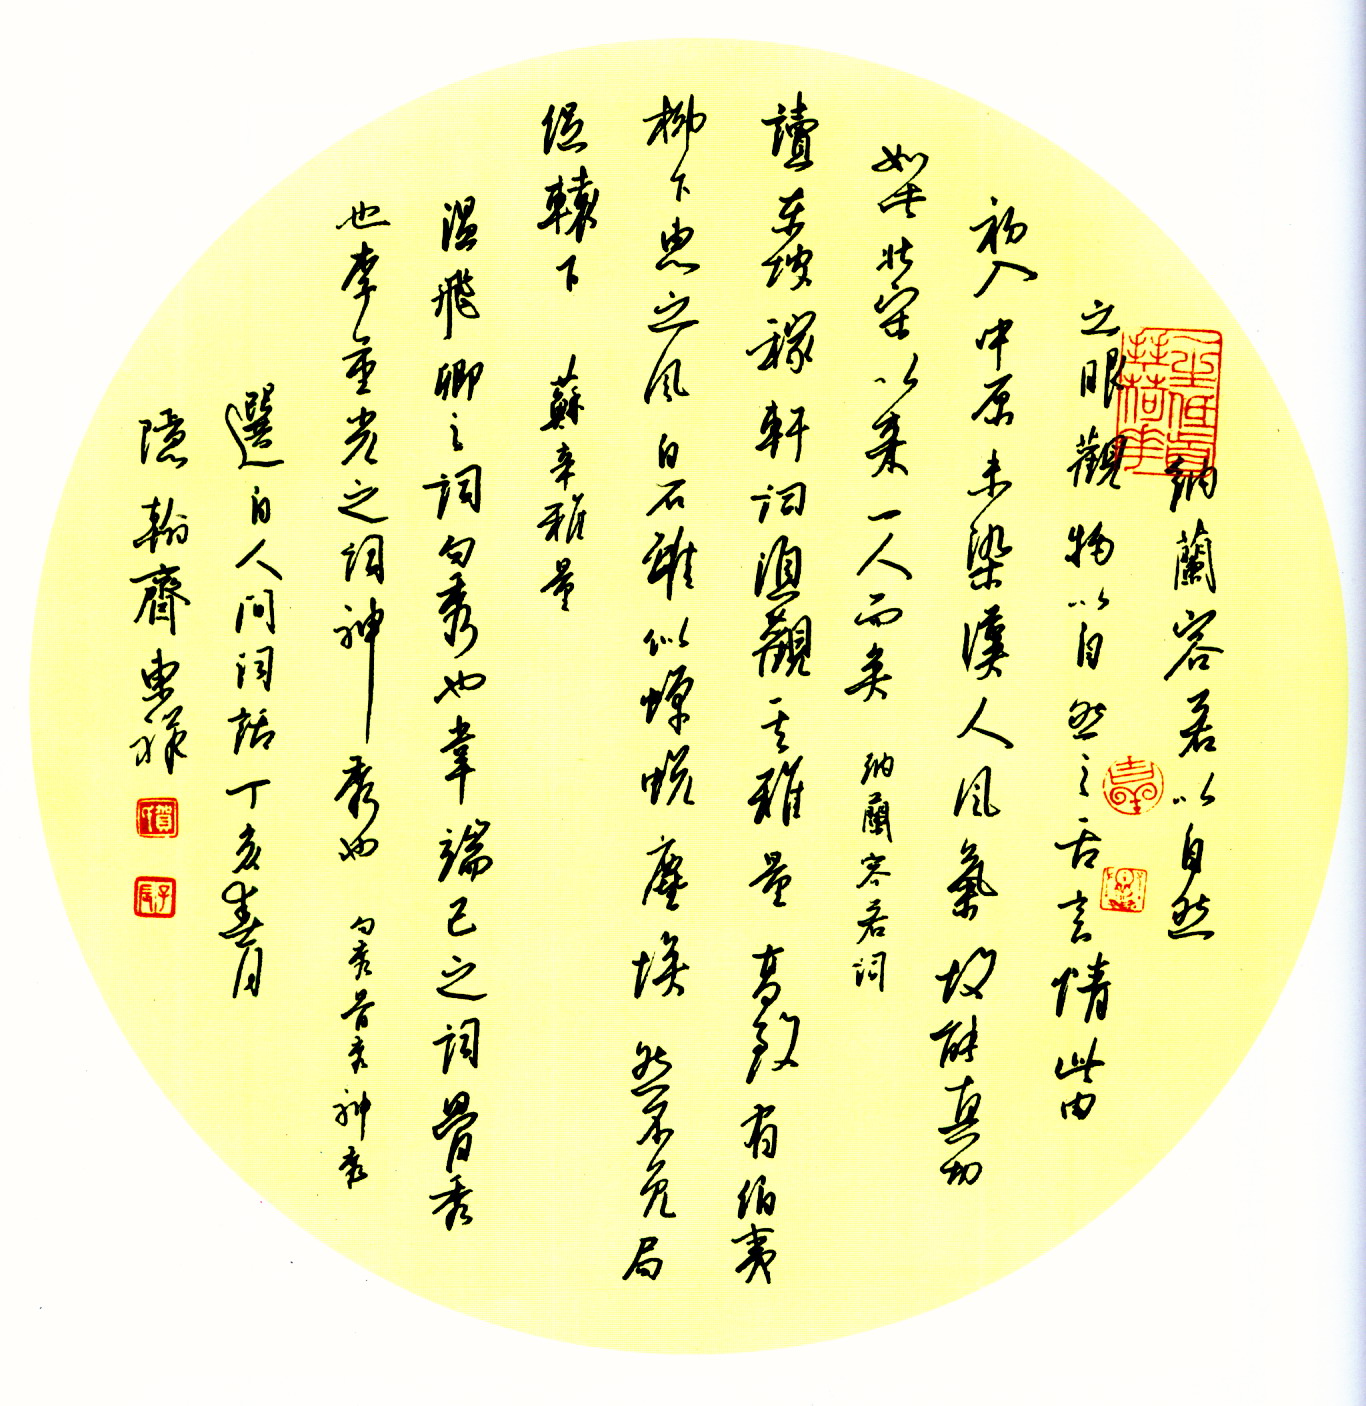 納蘭容若以自然
之眼觀物以自然之舌言情此由
初入中原未染漢人風氣故能真切
如此北宋以來一人而矣 納蘭容若詞
讀東坡稼軒詞須觀其雅量高致有伯夷
柳下惠之風白石雖似蟬蛻塵埃然不免局
促轅下 蘇辛雅量
溫飛卿之詞句秀也韋端己之詞骨秀
也李重光之詞神秀也 句秀骨秀神秀
選自人間詞話丁亥春月
隱翰齋